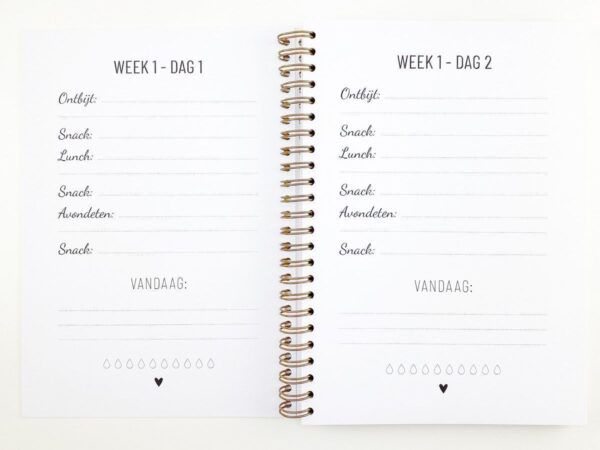 WEEK 1 - DAG 1
Ontbijt:
Snack:
Lunch:
Snack:
Avondeten:
Snack:
VANDAAG:
WEEK 1 - DAG 2
Ontbijt:
Snack:
Lunch:
Snack:
Avondeten:
Snack:
VANDAAG: